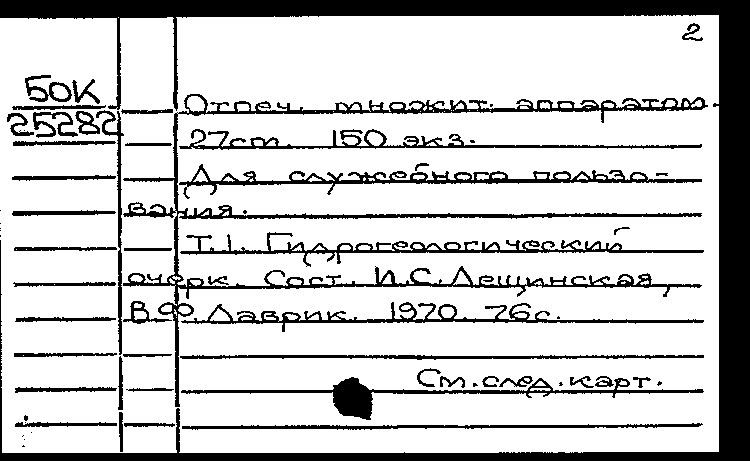 2
БОК
25282
Отпеч. множит. аппаратом.
27см. 150 экз.
Для служебного пользо-
вания.
Т.1. Гидрогеологический
очерк. Сост. И.С.Лещинская,
В.Ф.Лаврик. 1970. 76с.
См.след.карт.